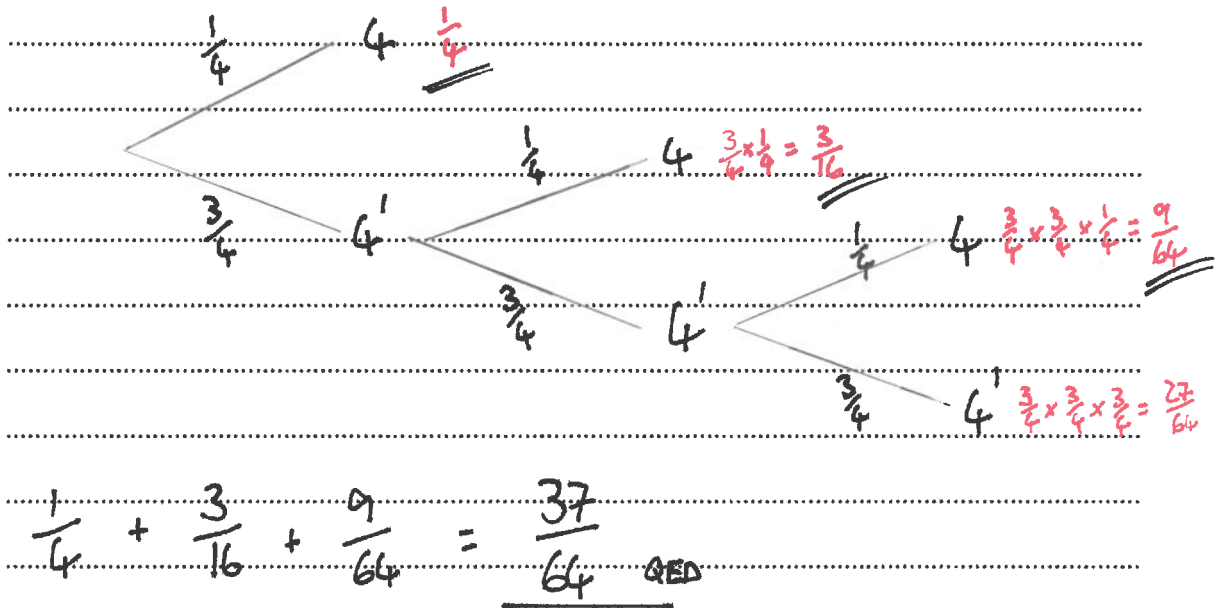 1/4 4 1/4
1/4 4 3/4 × 1/4 = 3/16
3/4 4' 1/4 4 3/4 × 3/4 × 1/4 = 9/64
3/4 4'
3/4 4' 3/4 × 3/4 × 3/4 = 27/64
1/4 + 3/16 + 9/64 = 37/64 QED